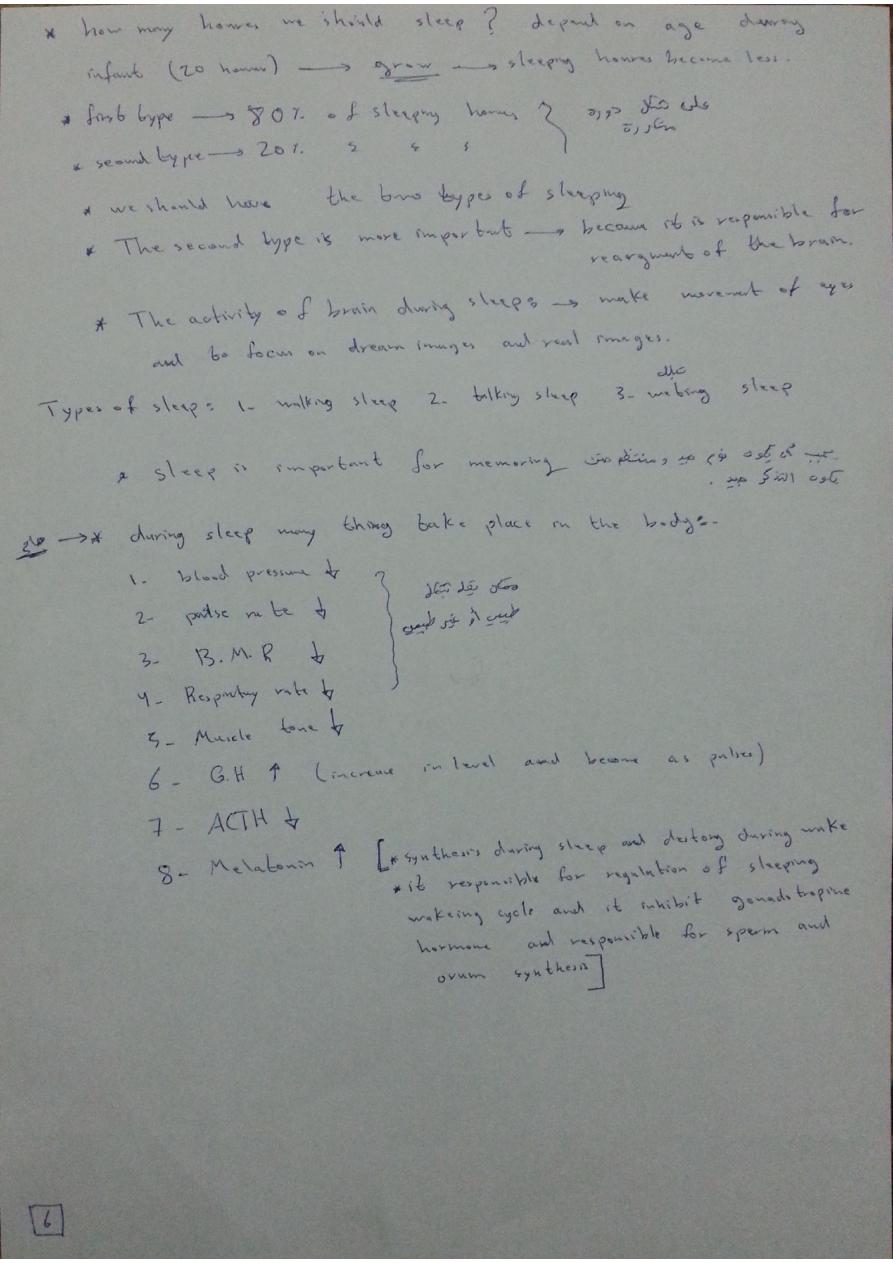 * how many houres we should sleep ? depend on age during
infant (20 houres) → grow → sleeping houres become less.
* first type → 80% of sleeping houres } على شكل دورة
متكررة
* seound type → 20% ٤ ٤ ٤
* we should have the two types of sleeping
* The second type is more important → because it is responsible for
reargment of the brain.
* The activity of brain during sleep: → make movement of eyes
and to focus on dream images and real images.
Types of sleep: 1- walking sleep 2- talking sleep 3- wetting sleep
* sleep is important for memoring يجب كي يكون نوم جيد ومنتظم حتى
يكون التذكر جيد .
→ * during sleep many thing take place in the body:-
1- blood pressure ↓
2- pulse rate ↓
3- B.M.R ↓
4- Respiratory rate ↓
طبيعي أو غير طبيعي
5- Muscle tone ↓
6- G.H ↑ (increase in level and become as pulses)
7- ACTH ↓
8- Melatonin ↑ [* synthesis during sleep and destory during wake
* it responsible for regulation of sleeping
wakeing cycle and it inhibit gonadotropine
hormone and responsible for sperm and
ovum synthesis]
6